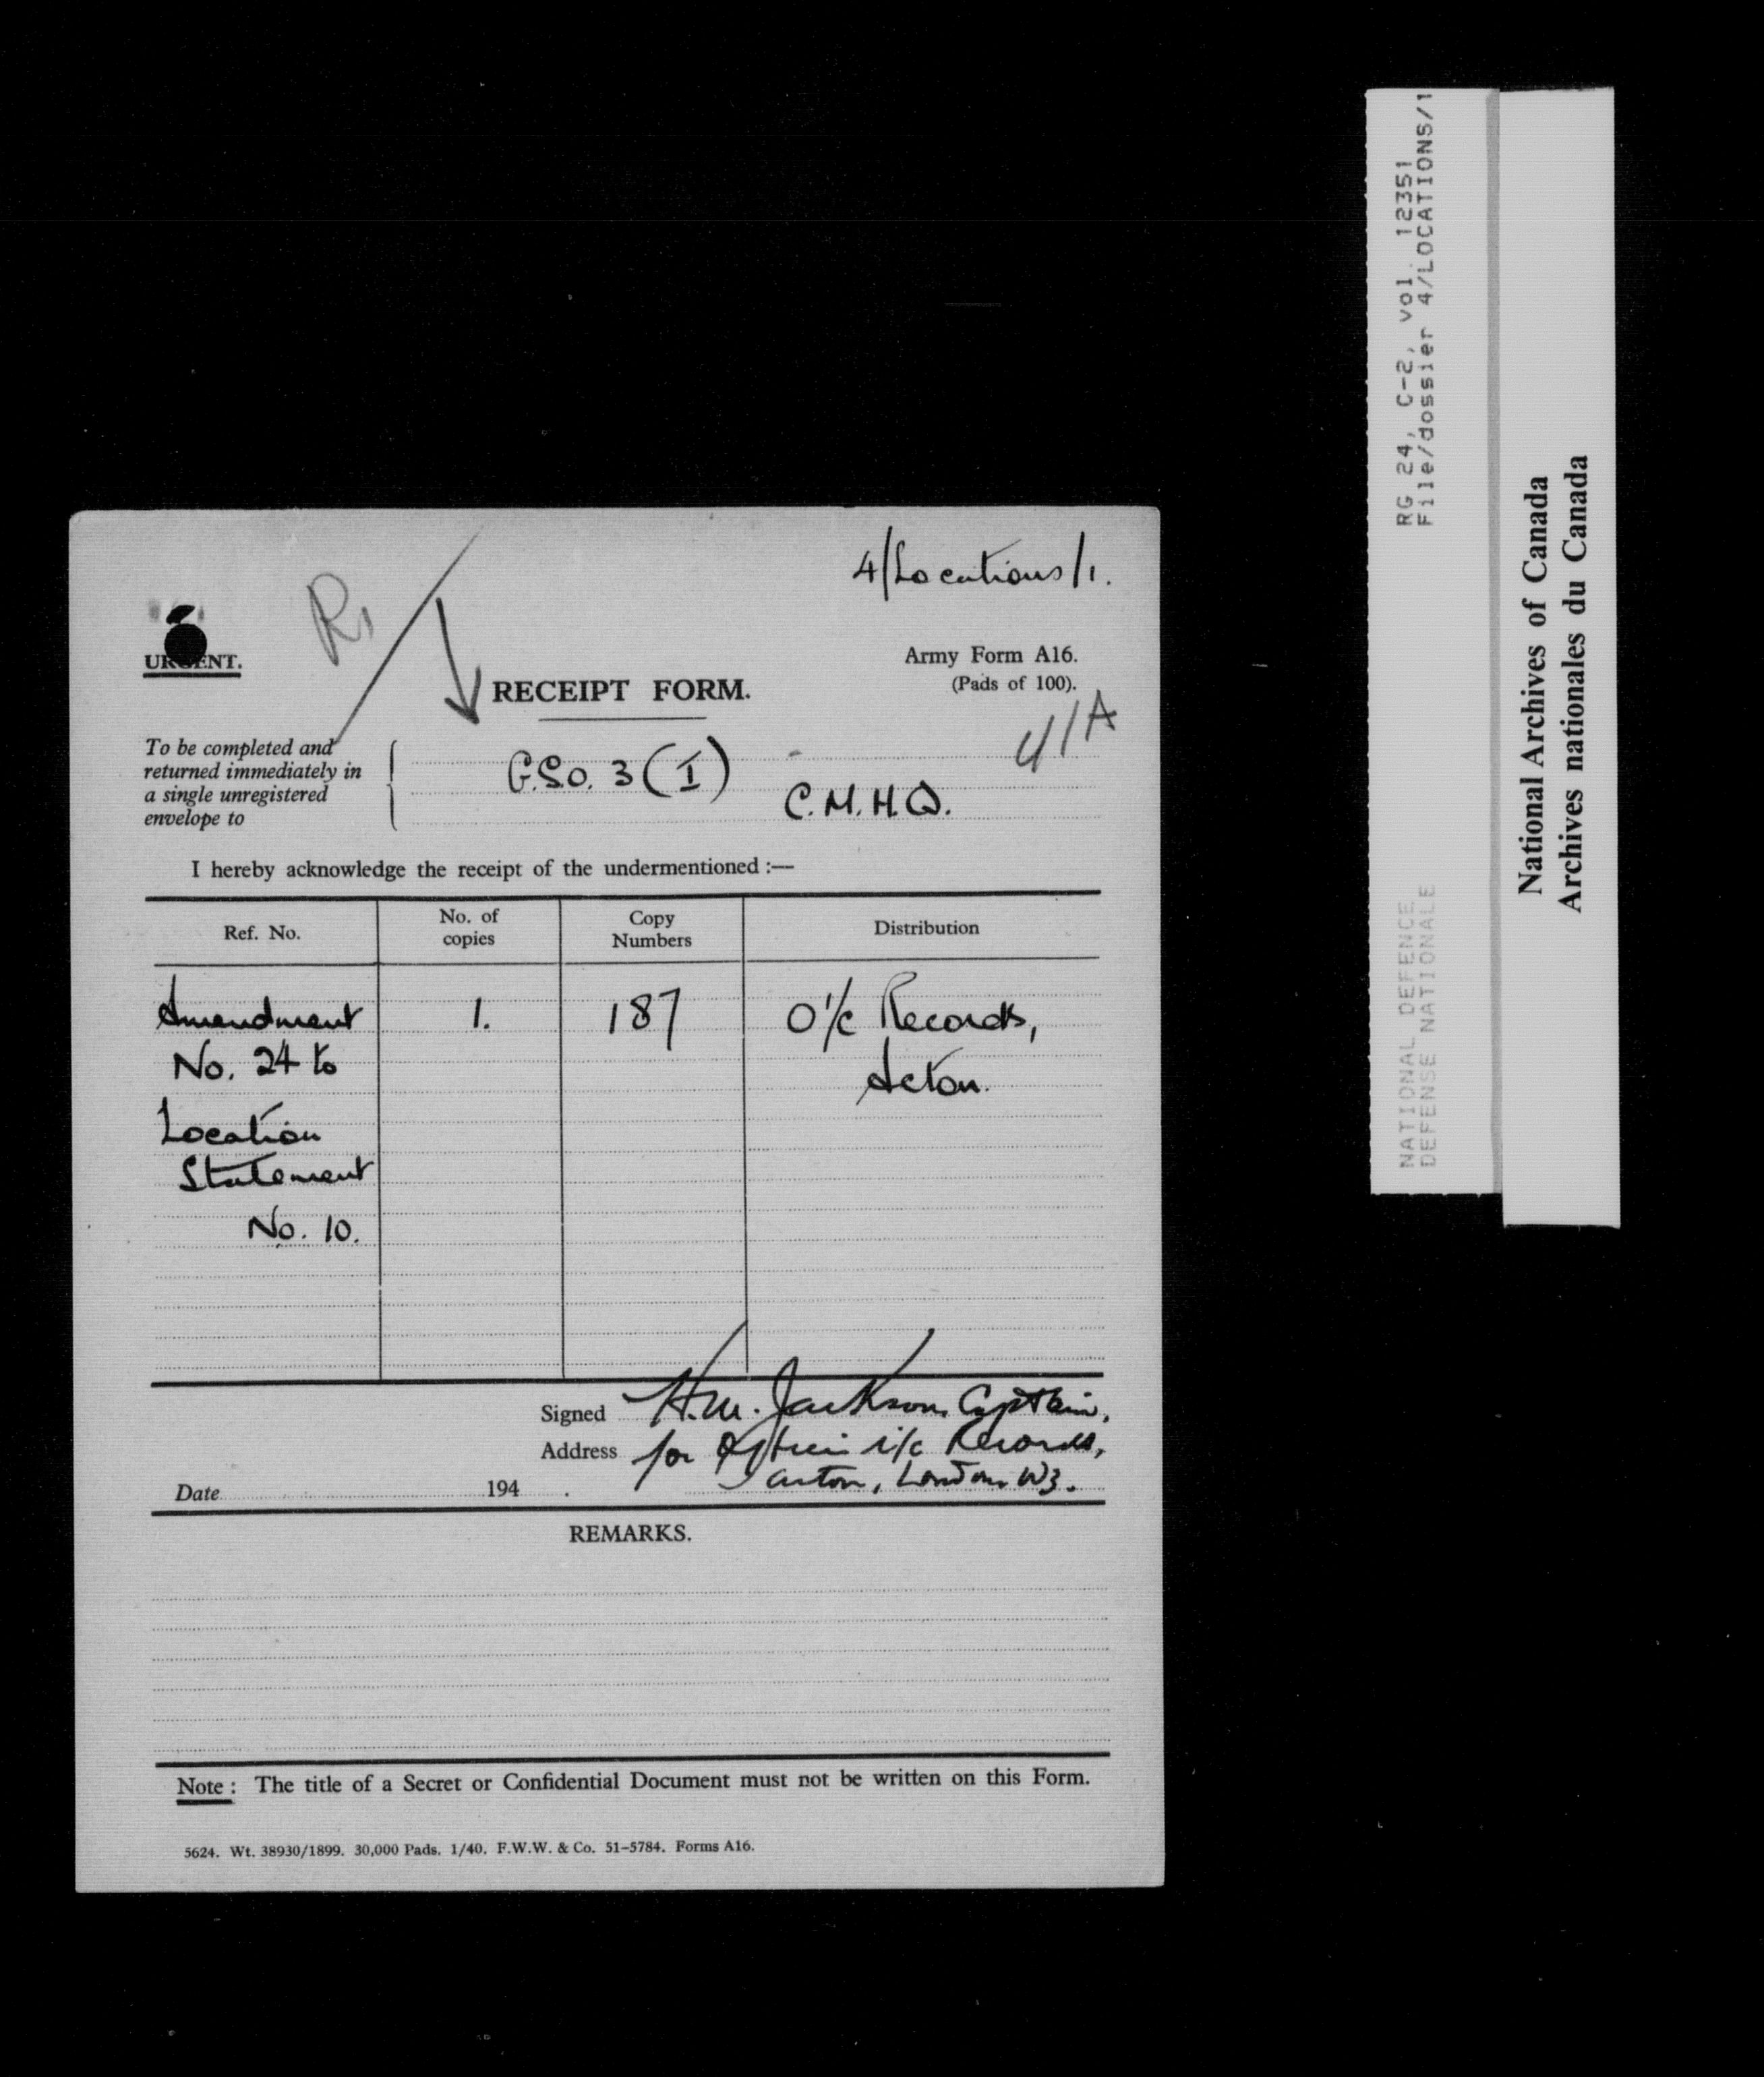 4/Locations/1.
R1
URGENT.
Army Form A16.
(Pads of 100).
RECEIPT FORM.
To be completed and
returned immediately in
a single unregistered
envelope to
G.S.O. 3 (I)
C.M.H.Q.
I hereby acknowledge the receipt of the undermentioned :—
Ref. No.
No. of
copies
Copy
Numbers
Distribution
Amendment 1. 187 O i/c Records,
No. 24 to Acton.
Location
Statement
No. 10.
Signed H.M. Jackson, Captain,
Address for Officer i/c Records,
Acton, London W3.
Date 194 .
REMARKS.
Note : The title of a Secret or Confidential Document must not be written on this Form.
5624. Wt. 38930/1899. 30,000 Pads. 1/40. F.W.W. & Co. 51–5784. Forms A16.
RG 24, C-2, vol. 12351
File/dossier 4/LOCATIONS/1
NATIONAL DEFENCE
DEFENSE NATIONALE
National Archives of Canada
Archives nationales du Canada